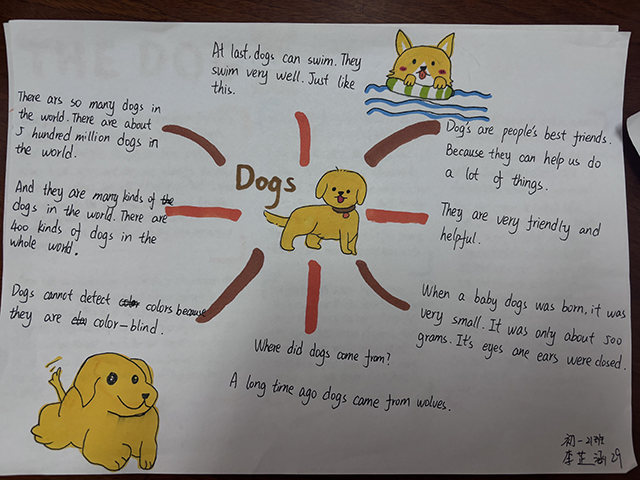 At last, dogs can swim. They
swim very well. Just like
this.
There ars so many dogs in
the world. There are about
5 hundred million dogs in
the world.
Dog's are people's best friends.
Because they can help us do
a lot of things.
Dogs
And they are many kinds of the
dogs in the world. There are
400 kinds of dogs in the
whole world.
They are very friendly and
helpful.
Dogs cannot detect color colors because
they are color-blind.
When a baby dogs was born, it was
very small. It was only about 500
grams. It's eyes ane ears were closed.
Where did dogs come from?
A long time ago dogs came from wolves.
初一21班
李芷涵 29